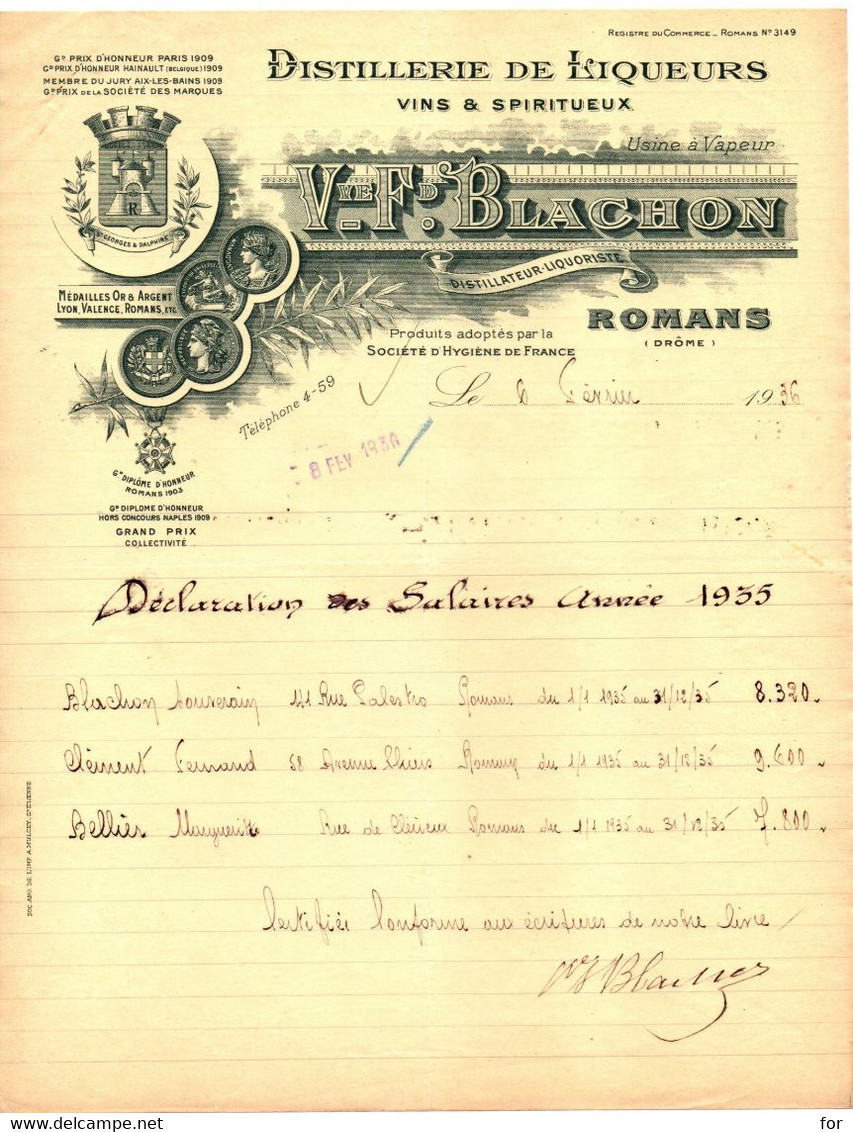 REGISTRE DU COMMERCE _ ROMANS N° 3149
Gd PRIX D'HONNEUR PARIS 1909
Gd PRIX D'HONNEUR HAINAULT (BELGIQUE) 1909
MEMBRE DU JURY AIX-LES-BAINS 1909
Gd PRIX DE LA SOCIÉTÉ DES MARQUES
DISTILLERIE DE LIQUEURS
VINS & SPIRITUEUX
Usine à Vapeur
Vve Fd BLACHON
DISTILLATEUR-LIQUORISTE
R
St GEORGES & DALPHINÉ
MÉDAILLES OR & ARGENT
LYON, VALENCE, ROMANS, ETC
ROMANS
(DRÔME)
Produits adoptés par la
SOCIÉTÉ D'HYGIÈNE DE FRANCE
Téléphone 4-59
Le 6 Février 1936
8 FEV 1936
Gd DIPLÔME D'HONNEUR
ROMANS 1903
Gd DIPLOME D'HONNEUR
HORS CONCOURS NAPLES 1909
GRAND PRIX
COLLECTIVITÉ
Déclaration des Salaires Année 1935
Blachon Souverain 41 Rue Palestro Romans du 1/1 1935 au 31/12/35 8.320
Clément Fernand 58 Avenue Thiers Romans du 1/1 1935 au 31/12/35 9.600
Bellier Marguerite Rue de Clérieux Romans du 1/1 1935 au 31/12/35 7.800
Certifiée Conforme aux écritures de notre livre
Vve F Blachon
SOC. ANO. DE L'IMP. A. MULCEY, St ETIENNE
for